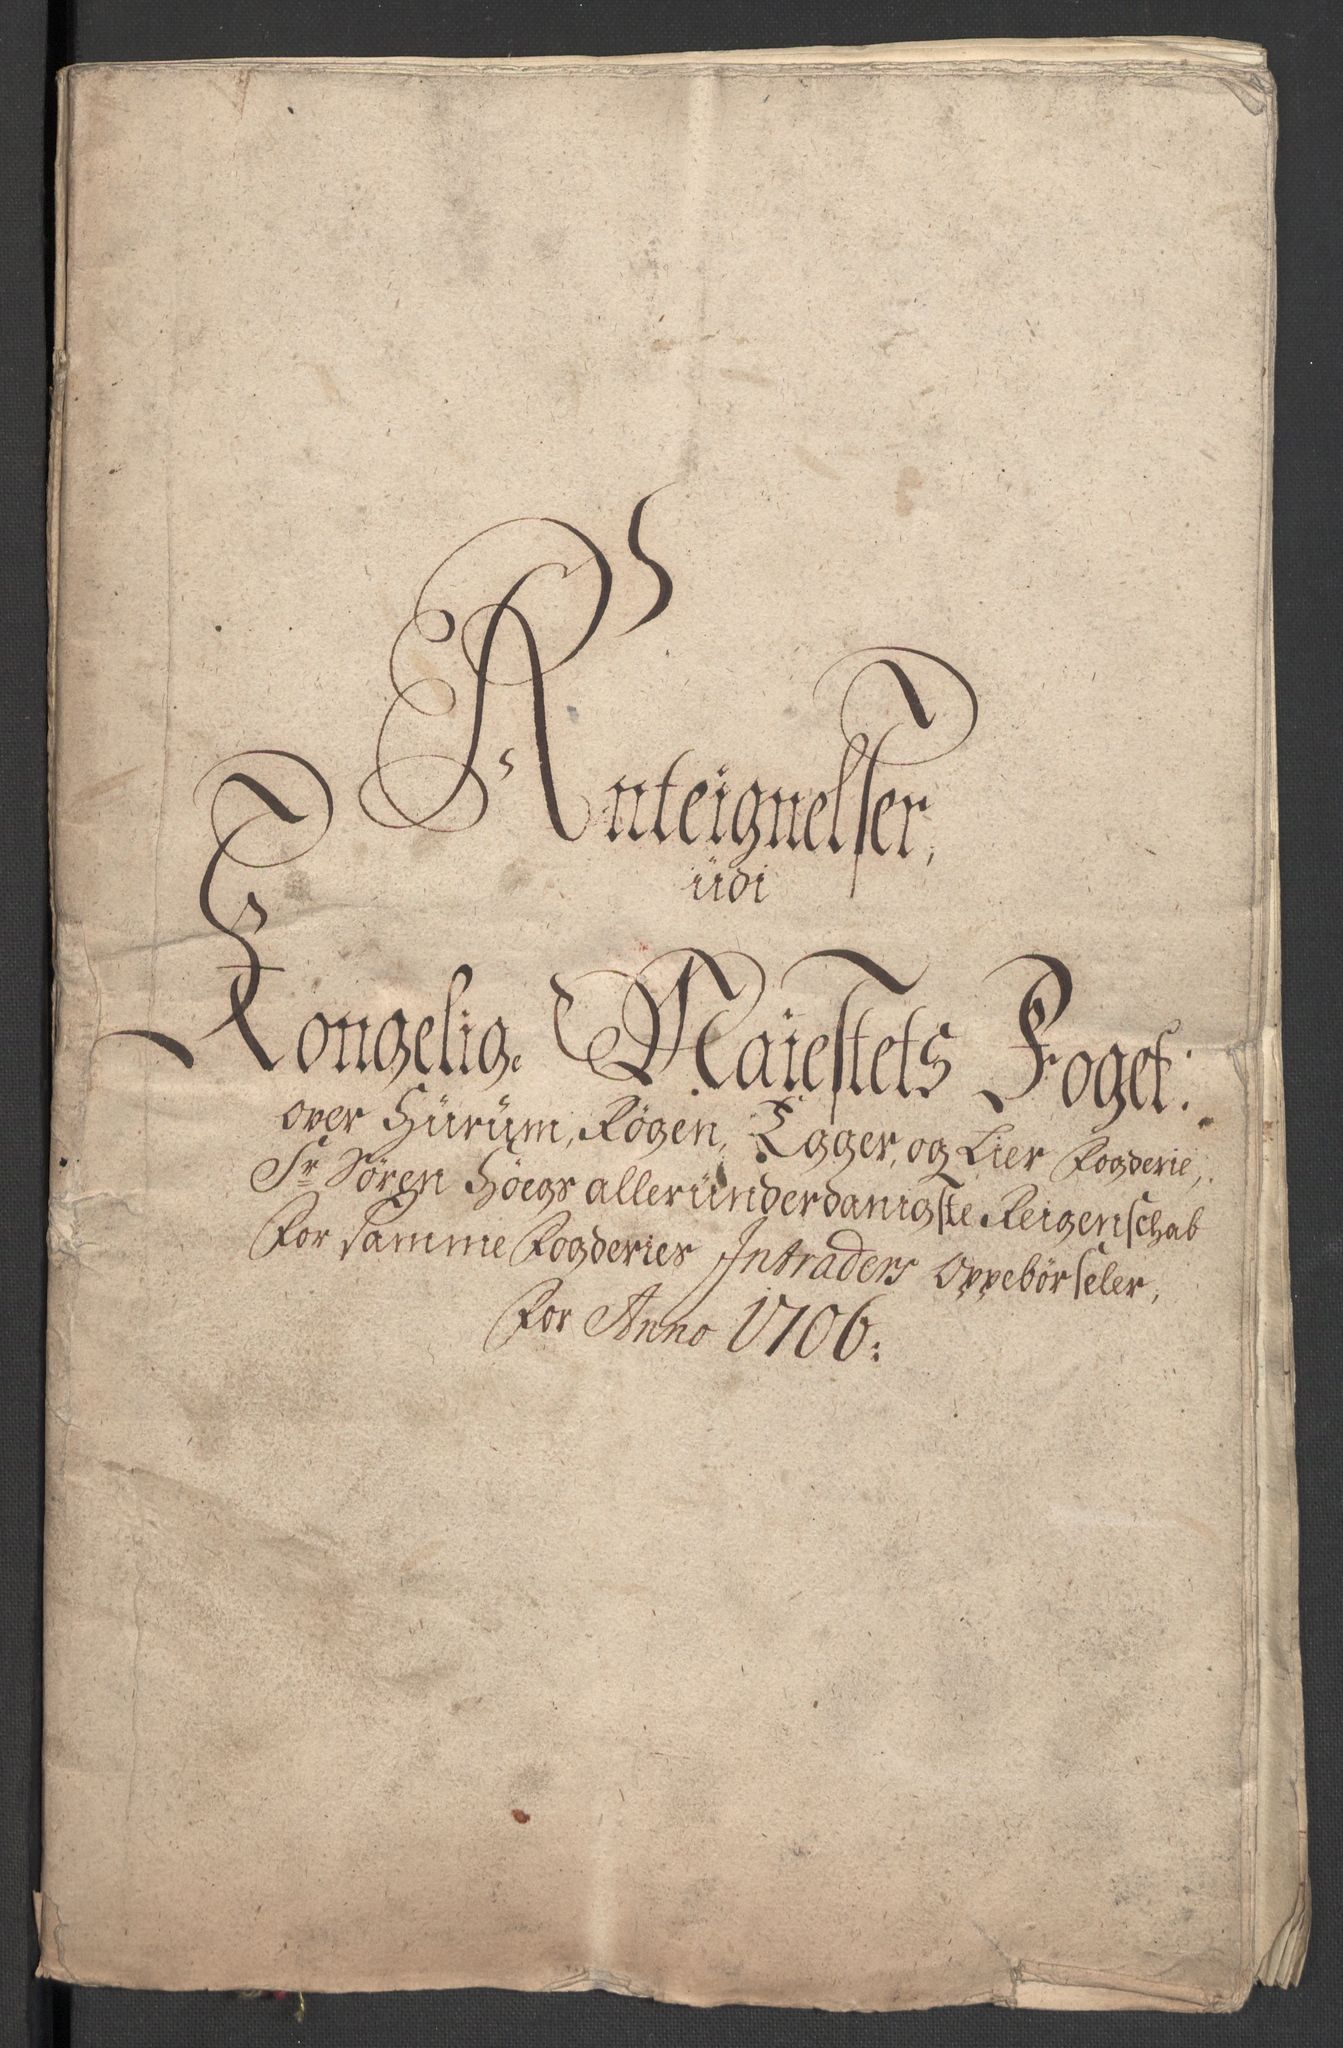 Anteignelser,
udi
Kongelig. Maiestets Foget:
over Hürüm, Røgen, Egger, og Lier Fogderie,
Sr Søren Höegs alleründerdanigste Reigenschab
For samme Fogderies Intraders Oppebörseler,
For Anno 1706: